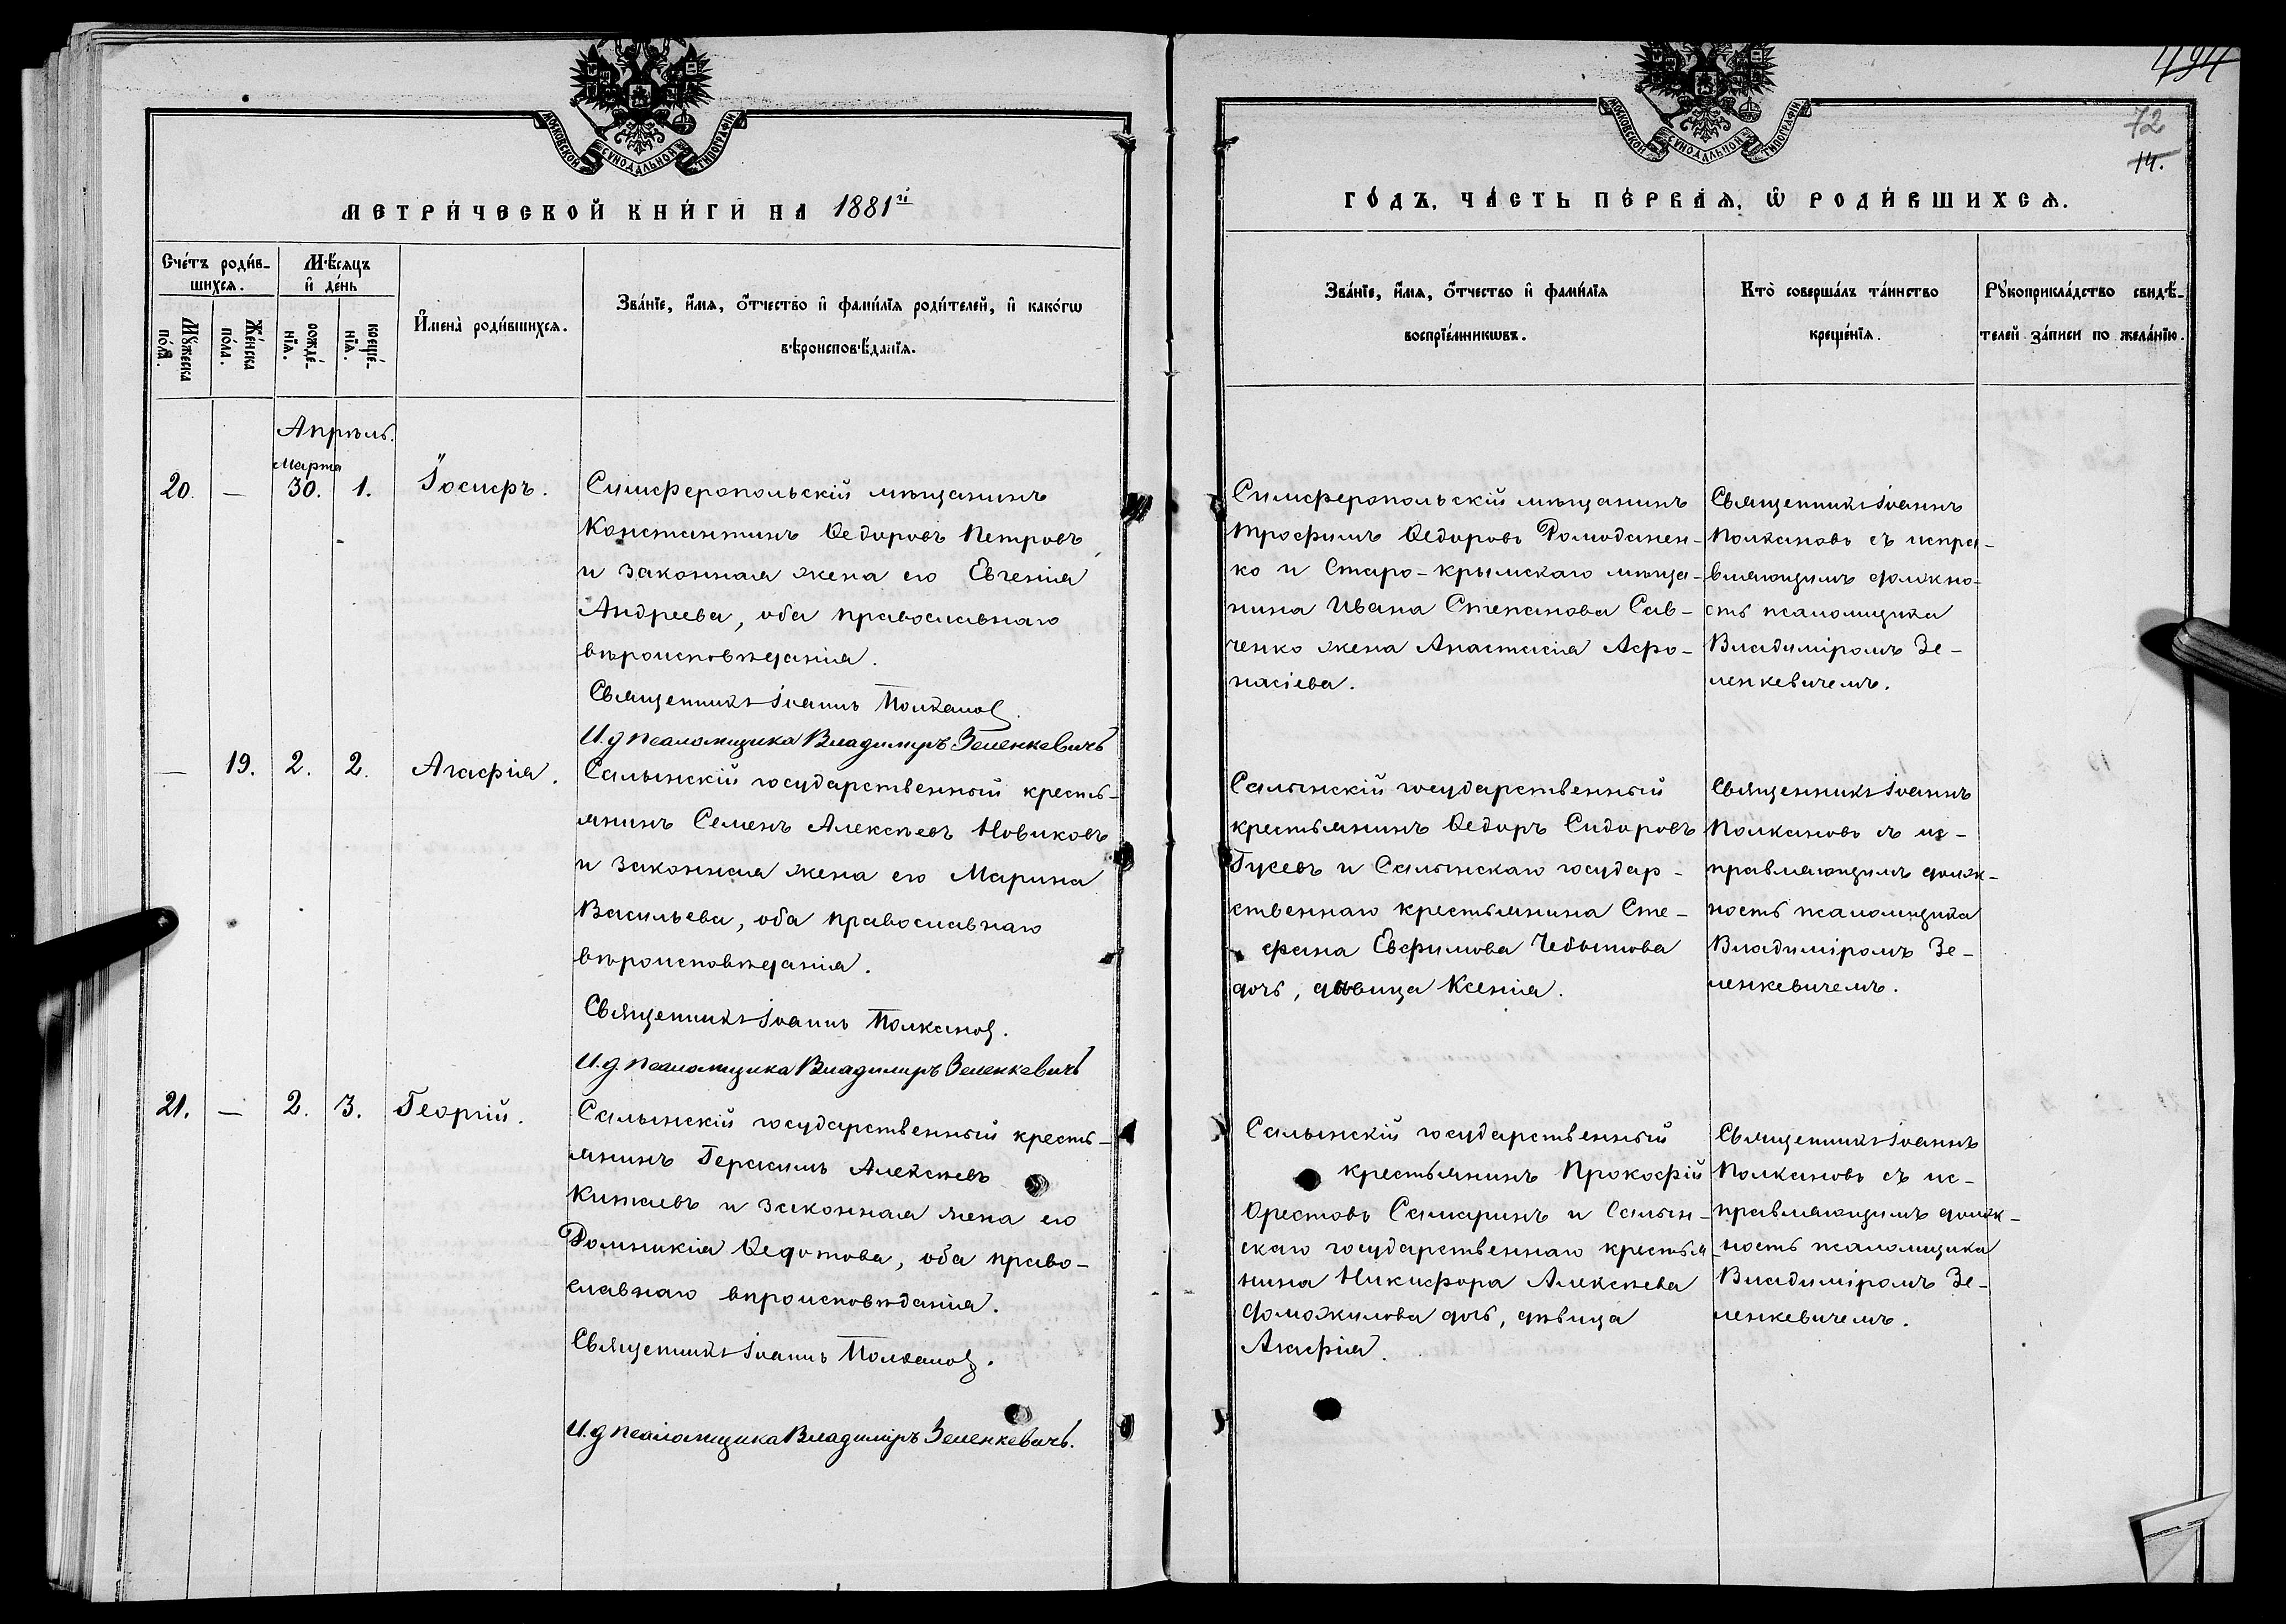 МОСКОВСКОЙ СѴНОДАЛЬНОЙ ТИПОГРАФІИ
МЕТРИ́ЧЕСКОЙ КНИ́ГИ НА 1881й
Сче́тъ роди́в-
шихсѧ.
Мѣ́сѧцъ
и҆ де́нь
Мꙋ́жеска
по́ла.
Же́нска
по́ла.
рожде́-
нїѧ.
креще́-
нїѧ.
И҆мена̀ роди́вшихсѧ.
Зва́нїе, и҆́мѧ, ѻ҆́тчество и҆ фами́лїѧ роди́телей, и҆ како́гѡ
вѣроисповѣ́данїѧ.
Апрѣль.
Марта
20. — 30. 1. Іосифъ.
Симферопольскій мѣщанинъ
Константинъ Ѳедоровъ Петровъ
и законная жена его Евгенія
Андреева, оба православнаго
вѣроисповѣданія.
Священникъ Іоаннъ Полкановъ.
И.д псаломщика Владимиръ Зеленкевичъ
— 19. 2. 2. Агафія.
Салынскій государственный кресть-
янинъ Семенъ Алексѣевъ Новиковъ
и законная жена его Марина
Васильева, оба православнаго
вѣроисповѣданія.
Священникъ Іоаннъ Полкановъ.
И.д. псаломщика Владимиръ Зеленкевичъ
21. — 2. 3. Георгій.
Салынскій государственный кресть-
янинъ Герасимъ Алексѣевъ
Китаевъ и законная жена его
Домникія Ѳедотова, оба право-
славнаго вѣроисповѣданія.
Священникъ Іоаннъ Полкановъ.
И.д псаломщика Владиміръ Зеленкевичъ.
494
72
14.
МОСКОВСКОЙ СѴНОДАЛЬНОЙ ТИПОГРАФІИ
ГО́ДЪ, ЧА́СТЬ ПЕ́РВАѦ, Ѡ҆ РОДИ́ВШИХСѦ.
Зва́нїе, и҆́мѧ, ѻ҆́тчество и҆ фами́лїѧ
воспрїе́мникѡвъ.
Кто̀ соверша́лъ та́инство
креще́нїѧ.
Рꙋкоприкла́дство свидѣ́-
телей за́писи по жела́нїю.
Симферопольскій мѣщанинъ
Трофимъ Ѳедоровъ Ромоданен-
ко и Старо-крымскаго мѣща-
нина Ивана Степанова Сав-
ченко жена Анастасія Афо-
насіева.
Священникъ Іоаннъ
Полкановъ съ испра-
вляющимъ должно-
сть псаломщика
Владиміромъ Зе-
ленкевичемъ.
Салынскій государственный
крестьянинъ Ѳедоръ Сидоровъ
Гусевъ и Салынскаго государ-
ственнаго крестьянина Сте-
фана Евфимова Чебытова
дочь, дѣвица Ксенія.
Священникъ Іоаннъ
Полкановъ съ ис-
правляющимъ долж-
ность псаломщика
Владиміромъ Зе-
ленкевичемъ.
Салынскій государственный
крестьянинъ Прокофій
Орестовъ Самаринъ и Салын-
скаго государственнаго крестья-
нина Никифора Алексѣева
Доможилова дочь, дѣвица
Агафія.
Священникъ Іоаннъ
Полкановъ съ ис-
правляющимъ долж-
ность псаломщика
Владиміромъ Зе-
ленкевичемъ.